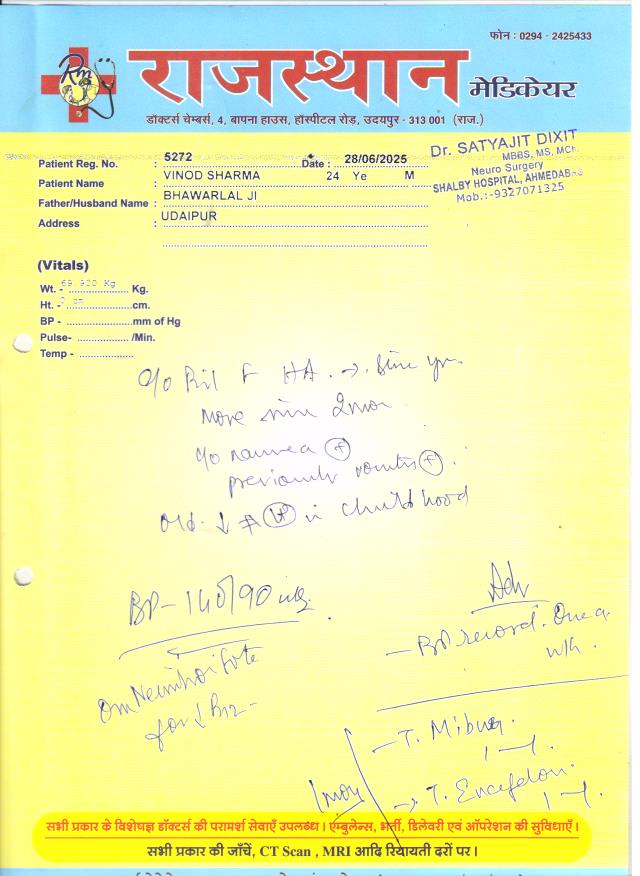 फोन : 0294 - 2425433
Rm
राजस्थान मेडिकेयर
डॉक्टर्स चेम्बर्स, 4, बापना हाउस, हॉस्पीटल रोड़, उदयपुर - 313 001 (राज.)
Dr. SATYAJIT DIXIT
MBBS, MS, MCh.
Neuro Surgery
SHALBY HOSPITAL, AHMEDABAD
Mob.:-9327071325
Patient Reg. No. : 5272 Date : 28/06/2025
Patient Name : VINOD SHARMA 24 Ye M
Father/Husband Name : BHAWARLAL JI
Address : UDAIPUR
(Vitals)
Wt. - 69.920 Kg Kg.
Ht. - cm cm.
BP - mm of Hg
Pulse- /Min.
Temp -
c/o Bil F HA → Since yr.
More since 2mon
c/o nausea (+)
previously (+).
Old ↓ in childhood
BP - 140/90
Adv
- BP record. Once a wk.
On
for ↓ B12 -
- T.
1 - 1
→ T.
1 - 1
सभी प्रकार के विशेषज्ञ डॉक्टर्स की परामर्श सेवाएँ उपलब्ध। एम्बुलेन्स, भर्ती, डिलेवरी एवं ऑपरेशन की सुविधाएँ।
सभी प्रकार की जाँचें, CT Scan , MRI आदि रियायती दरों पर।